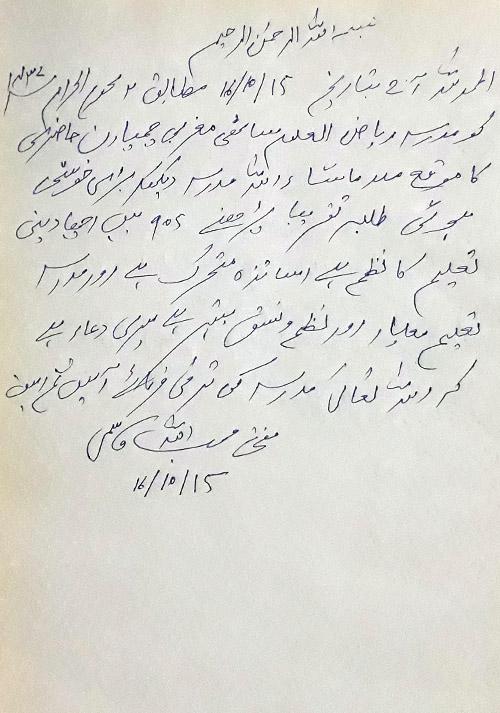 بسم اللہ الرحمن الرحیم
الحمد للہ آج بتاریخ 16/10/15 مطابق ۲ محرم الحرام
کو مدرسہ ریاض العلوم ساٹھی مغربی چمپارن حاضری
کا موقع ملا ماشاء اللہ مدرسہ دیکھکر بڑی خوشی
ہوئی طلبہ تقریبا پڑھنے ۹۰۲ ہیں اچھا دینی
تعلیم کا نظم ہے اساتذہ متحرک ہے اور مدرسہ
تعلیم معیار اور نظم و نسق بہتر ہے میری دعاء ہے
کہ اللہ تعالی مدرسہ کی ترقی فرمائے آمین ثم امین
مفتی اللہ قاسمی
16/10/15